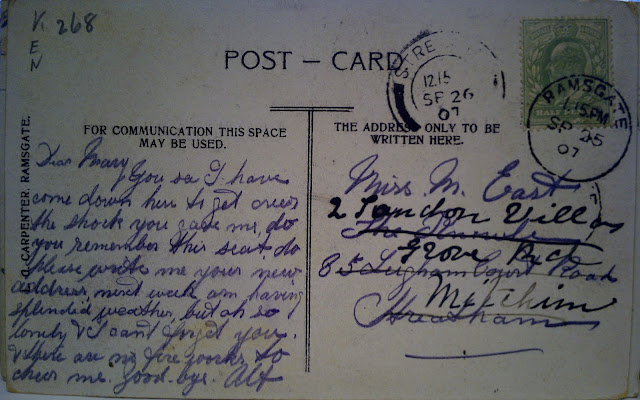 V. 268
E
N
POST – CARD
STRE
12.15
SP 26
07
RAMSGATE
1.15 PM
SP 25
07
HALF
G. CARPENTER, RAMSGATE.
FOR COMMUNICATION THIS SPACE
MAY BE USED.
Dear Mary
You see I have
come down here to get over
the shock you gave me, do
you remember this seat, do
please write me your new
address, next week am having
splendid weather, but oh so
lonely & I can't forget you.
& there are no fire works to
cheer me. good-bye. Alf
THE ADDRESS ONLY TO BE
WRITTEN HERE.
Miss M. East
2 London Villas
The
Grove Rd
85 Leigham Court Road
Mitchim
Streatham